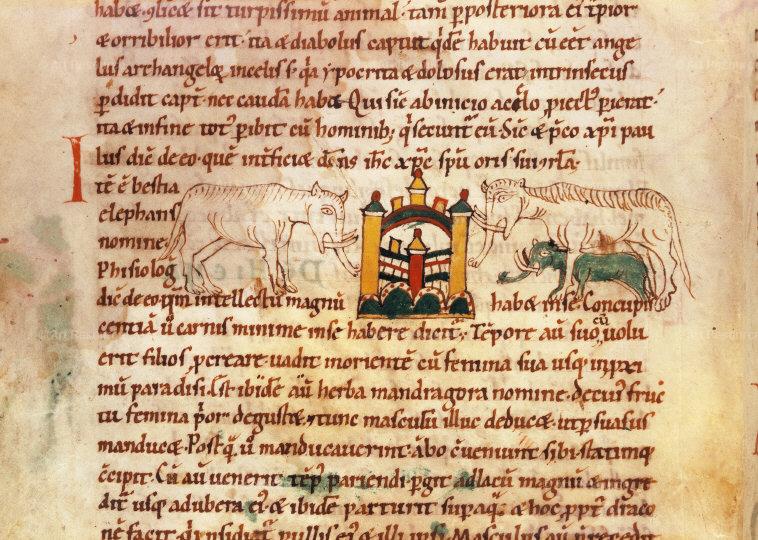 habet. & licet sit turpissimū animal. tam̄ p posteriora ei t̄pior
& orribilior erit. ita & diabolus caput qđe habuit cū eet ange
lus archangelꝰ incelis s; q̄a ypocrita & dolosus erat intrinsecus
pdidit caput. nec caudā habet. Qui sic abinicio
ita & infine totꝰ pibit cū hominibꝫ q̄ secunt eū. Sic & p̄co apl pau
lus dic̄ de eo. quē int̄ficiet dn̄s ihc xp̄c spū oris sui
Itē ē bestia
elephans
nomine.
Phisiologꝰ
dic̄ de eo qm̄ intellectū magnū habet inse. Concupis
centiā ū carnis minime inse habere dicit̄. Tēpore aū suo cū uolu
erit filios pcreare uadit inorientē cū femina sua usq; inpxi
mū paradisi. Est ibidē aū herba mandragora nomine. de cuiꝰ fruc
tu femina p̄or degustat. & tunc masculū illuc deducet. ut psuasus
manducet. Postq̄ ū manducauerint. abo cueniunt sibi. statimq;
c̄cipit. Cū aū uenerit tēpꝰ pariendi pgit ad lacū magnū & ingre
dit̄ usq; ad ubera eiꝰ & ibidē parturit sup aq̄. & hoc ppt̄ draco
nē facit